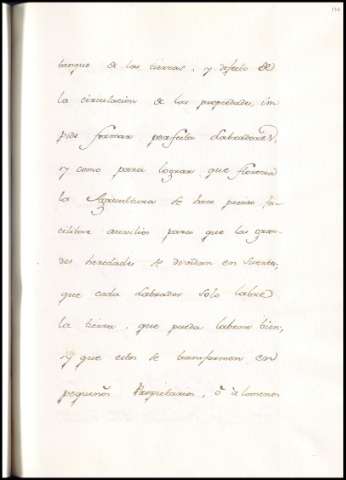 tanque de las tierras, y defecto de
la circulacion de las propiedades, im
pide formar perfectos Labradores,
y como para lograr que florezca
la Agricultura se hace preciso fa-
cilitar auxilios para que las gran-
des heredades se dividan en suertes,
que cada Labrador solo labre
la tierra, que pueda labrar bien,
y que estos se transformen en
pequeños Propietarios, ô á lo menos